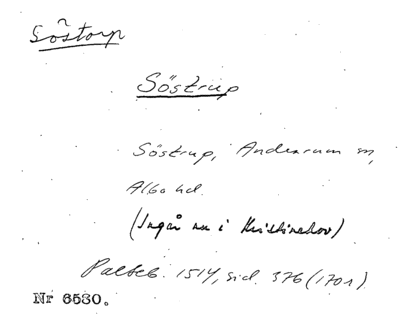 Söstorp
Söstrup
Söstrup, Andrarum sn,
Albo hd.
(Ingår nu i Kristinehov)
Palteb. 1514, sid. 376 (1701)
Nr 6530.